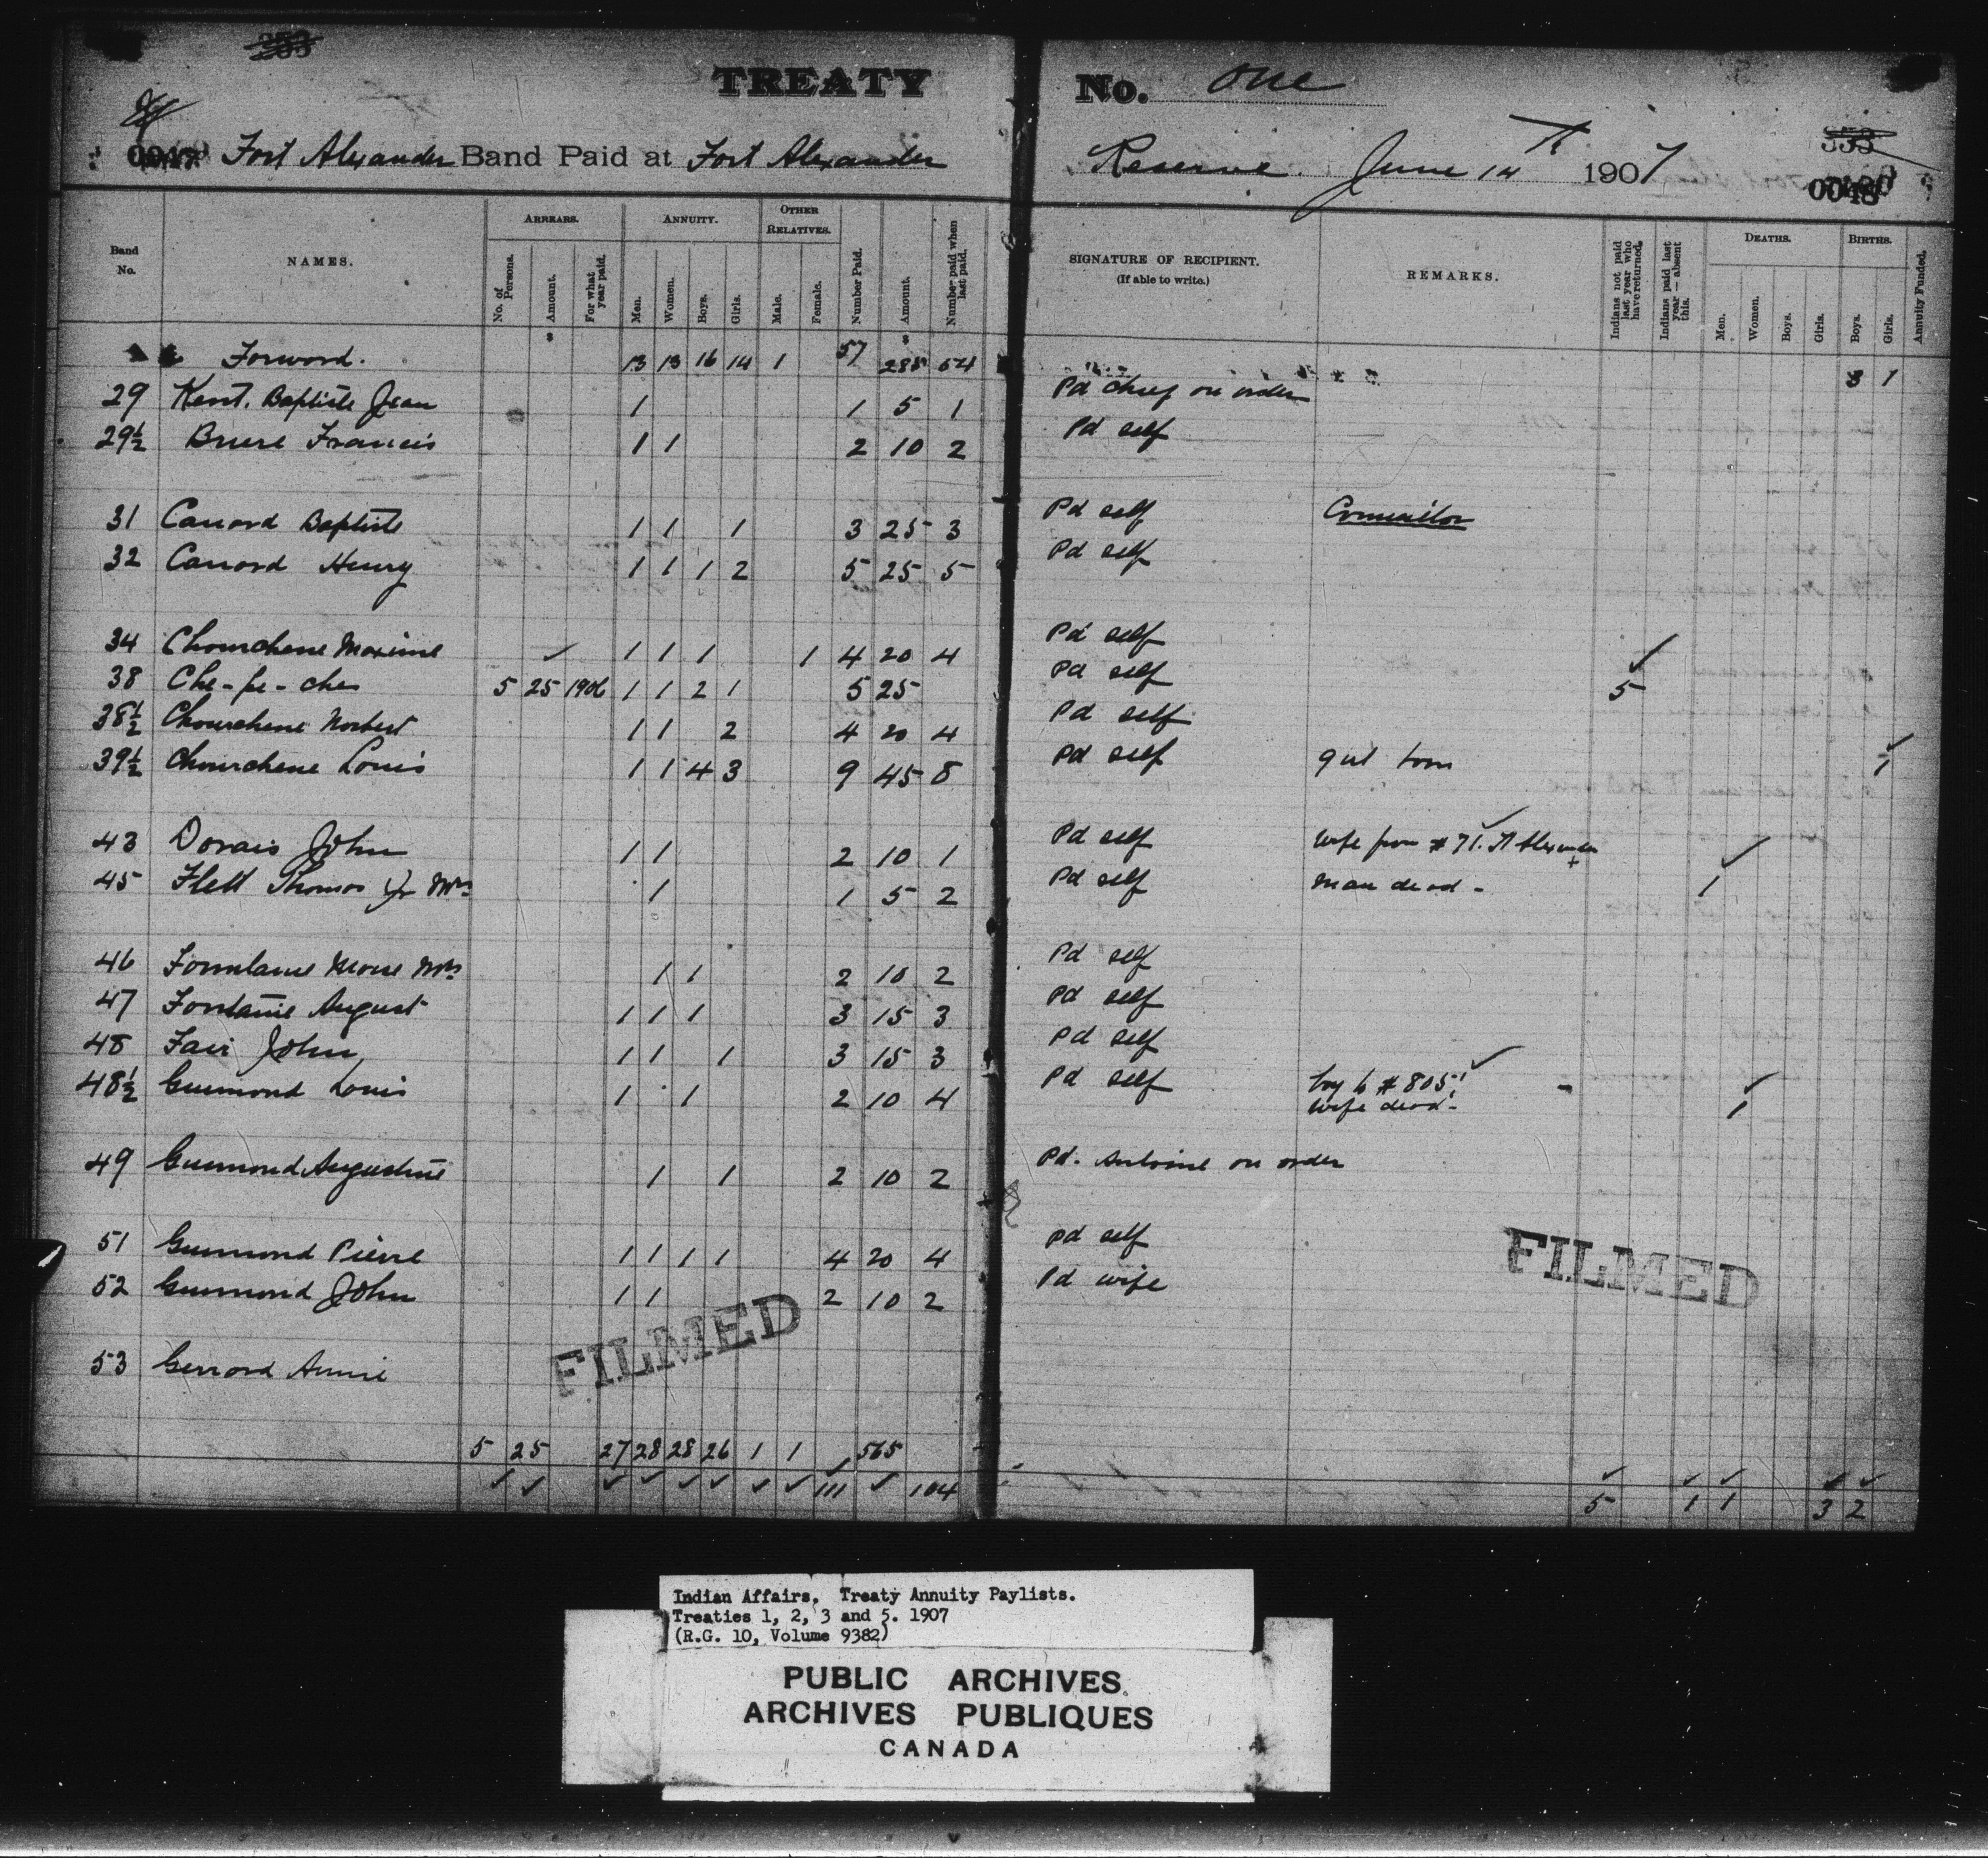 TREATY No. One
Fort Alexander Band Paid at Fort Alexander Reserve. June 14th 1907
353
353
0047
0048
Band No.
NAMES.
ARREARS.
No. of Persons.
Amount.
For what year paid.
ANNUITY.
Men.
Women.
Boys.
Girls.
OTHER RELATIVES.
Male.
Female.
Number Paid.
Amount.
Number paid when last paid.
SIGNATURE OF RECIPIENT.
(If able to write.)
REMARKS.
Indians not paid last year who have returned.
Indians paid last year — absent this.
DEATHS.
Men.
Women.
Boys.
Girls.
BIRTHS.
Boys.
Girls.
Annuity Funded.
Forword. 13 13 16 14 1 57 285 54 3 1
29 Kent. Baptiste Jean 1 1 5 1 Pd chief on order
29½ Bruere Francis 1 1 2 10 2 Pd self
31 Canard Baptiste 1 1 1 3 25 3 Pd self Councillor
32 Canard Henry 1 1 1 2 5 25 5 Pd self
34 Chourchene Maxime ✓ 1 1 1 1 4 20 4 Pd self ✓
38 Che-pe-ches 5 25 1906 1 1 2 1 5 25 Pd self 5
38½ Chourchene Norbert 1 1 2 4 20 4 Pd self
39½ Chourchene Louis 1 1 4 3 9 45 8 Pd self girl born ✓ 1
43 Dorais John 1 1 2 10 1 Pd self wife from #71. Ft Alexander ✓
45 Flett Thomas Jr Mrs 1 1 5 2 Pd self man dead - 1
46 Fontaine Moise Mrs 1 1 2 10 2 Pd self
47 Fontaine August 1 1 1 3 15 3 Pd self
48 Fair John 1 1 1 3 15 3 Pd self
48½ Guimond Louis 1 1 2 10 4 Pd self boy to #805 ✓
wife dead - 1
49 Guimond Augustine 1 1 2 10 2 Pd. Antoine on order
51 Guimond Pierre 1 1 1 1 4 20 4 Pd self
52 Guimond John 1 1 2 10 2 Pd wife
53 Gerrard Annie
FILMED
FILMED
5 25 27 28 28 26 1 1 565
✓ ✓ ✓ ✓ ✓ ✓ ✓ ✓ 111 ✓ 104 5 1 1 3 2
Indian Affairs. Treaty Annuity Paylists.
Treaties 1, 2, 3 and 5. 1907
(R.G. 10, Volume 9382)
PUBLIC ARCHIVES
ARCHIVES PUBLIQUES
CANADA